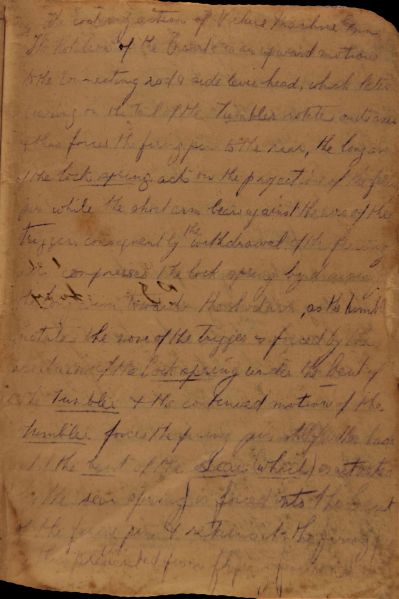 The Cocking action of Vickers Machine Gun
The Rotation of the Crank an upward motion
to the Connecting rod & side lever head, which latter
bearing on the tail of the Tumbler rotates on its axis
& thus forces the firing pin to the rear, the long arm
of the lock spring act on the projections of the firing
pin while the short arm bears against the nose of the
trigger, consequently the withdrawal of the firing
pin compresses the lock spring by drawing
long arm towards the short arm, as the tumbler
rotates the nose of the trigger is forced by the
short arm of the lock spring under the bent of
the Tumbler & the continued motion of the
Tumbler forces the firing pin until the
the bent of the Sear (which) actuated
by the sear spring is forced into the bent
of the firing pin & retains the firing pin
thus prevented from